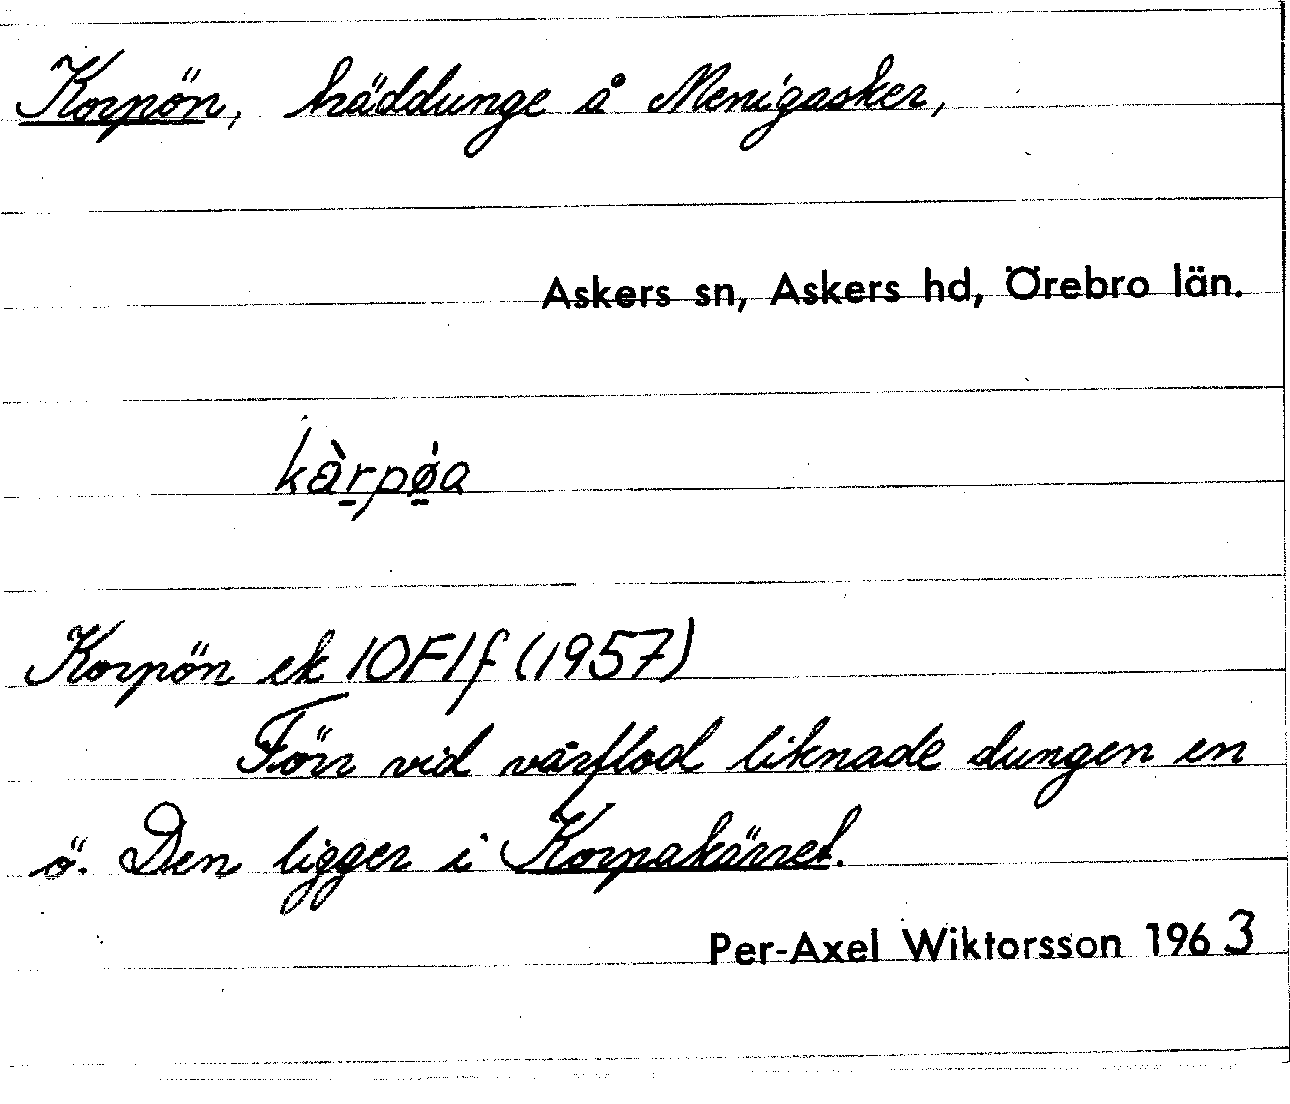 Korpön, träddunge å Menigasker,
Askers sn, Askers hd, Örebro län.
kàrpǿa
Korpön ek 10F1f (1957)
Förr vid vårflod liknade dungen en
ö. Den ligger i Korpakärret.
Per-Axel Wiktorsson 1963